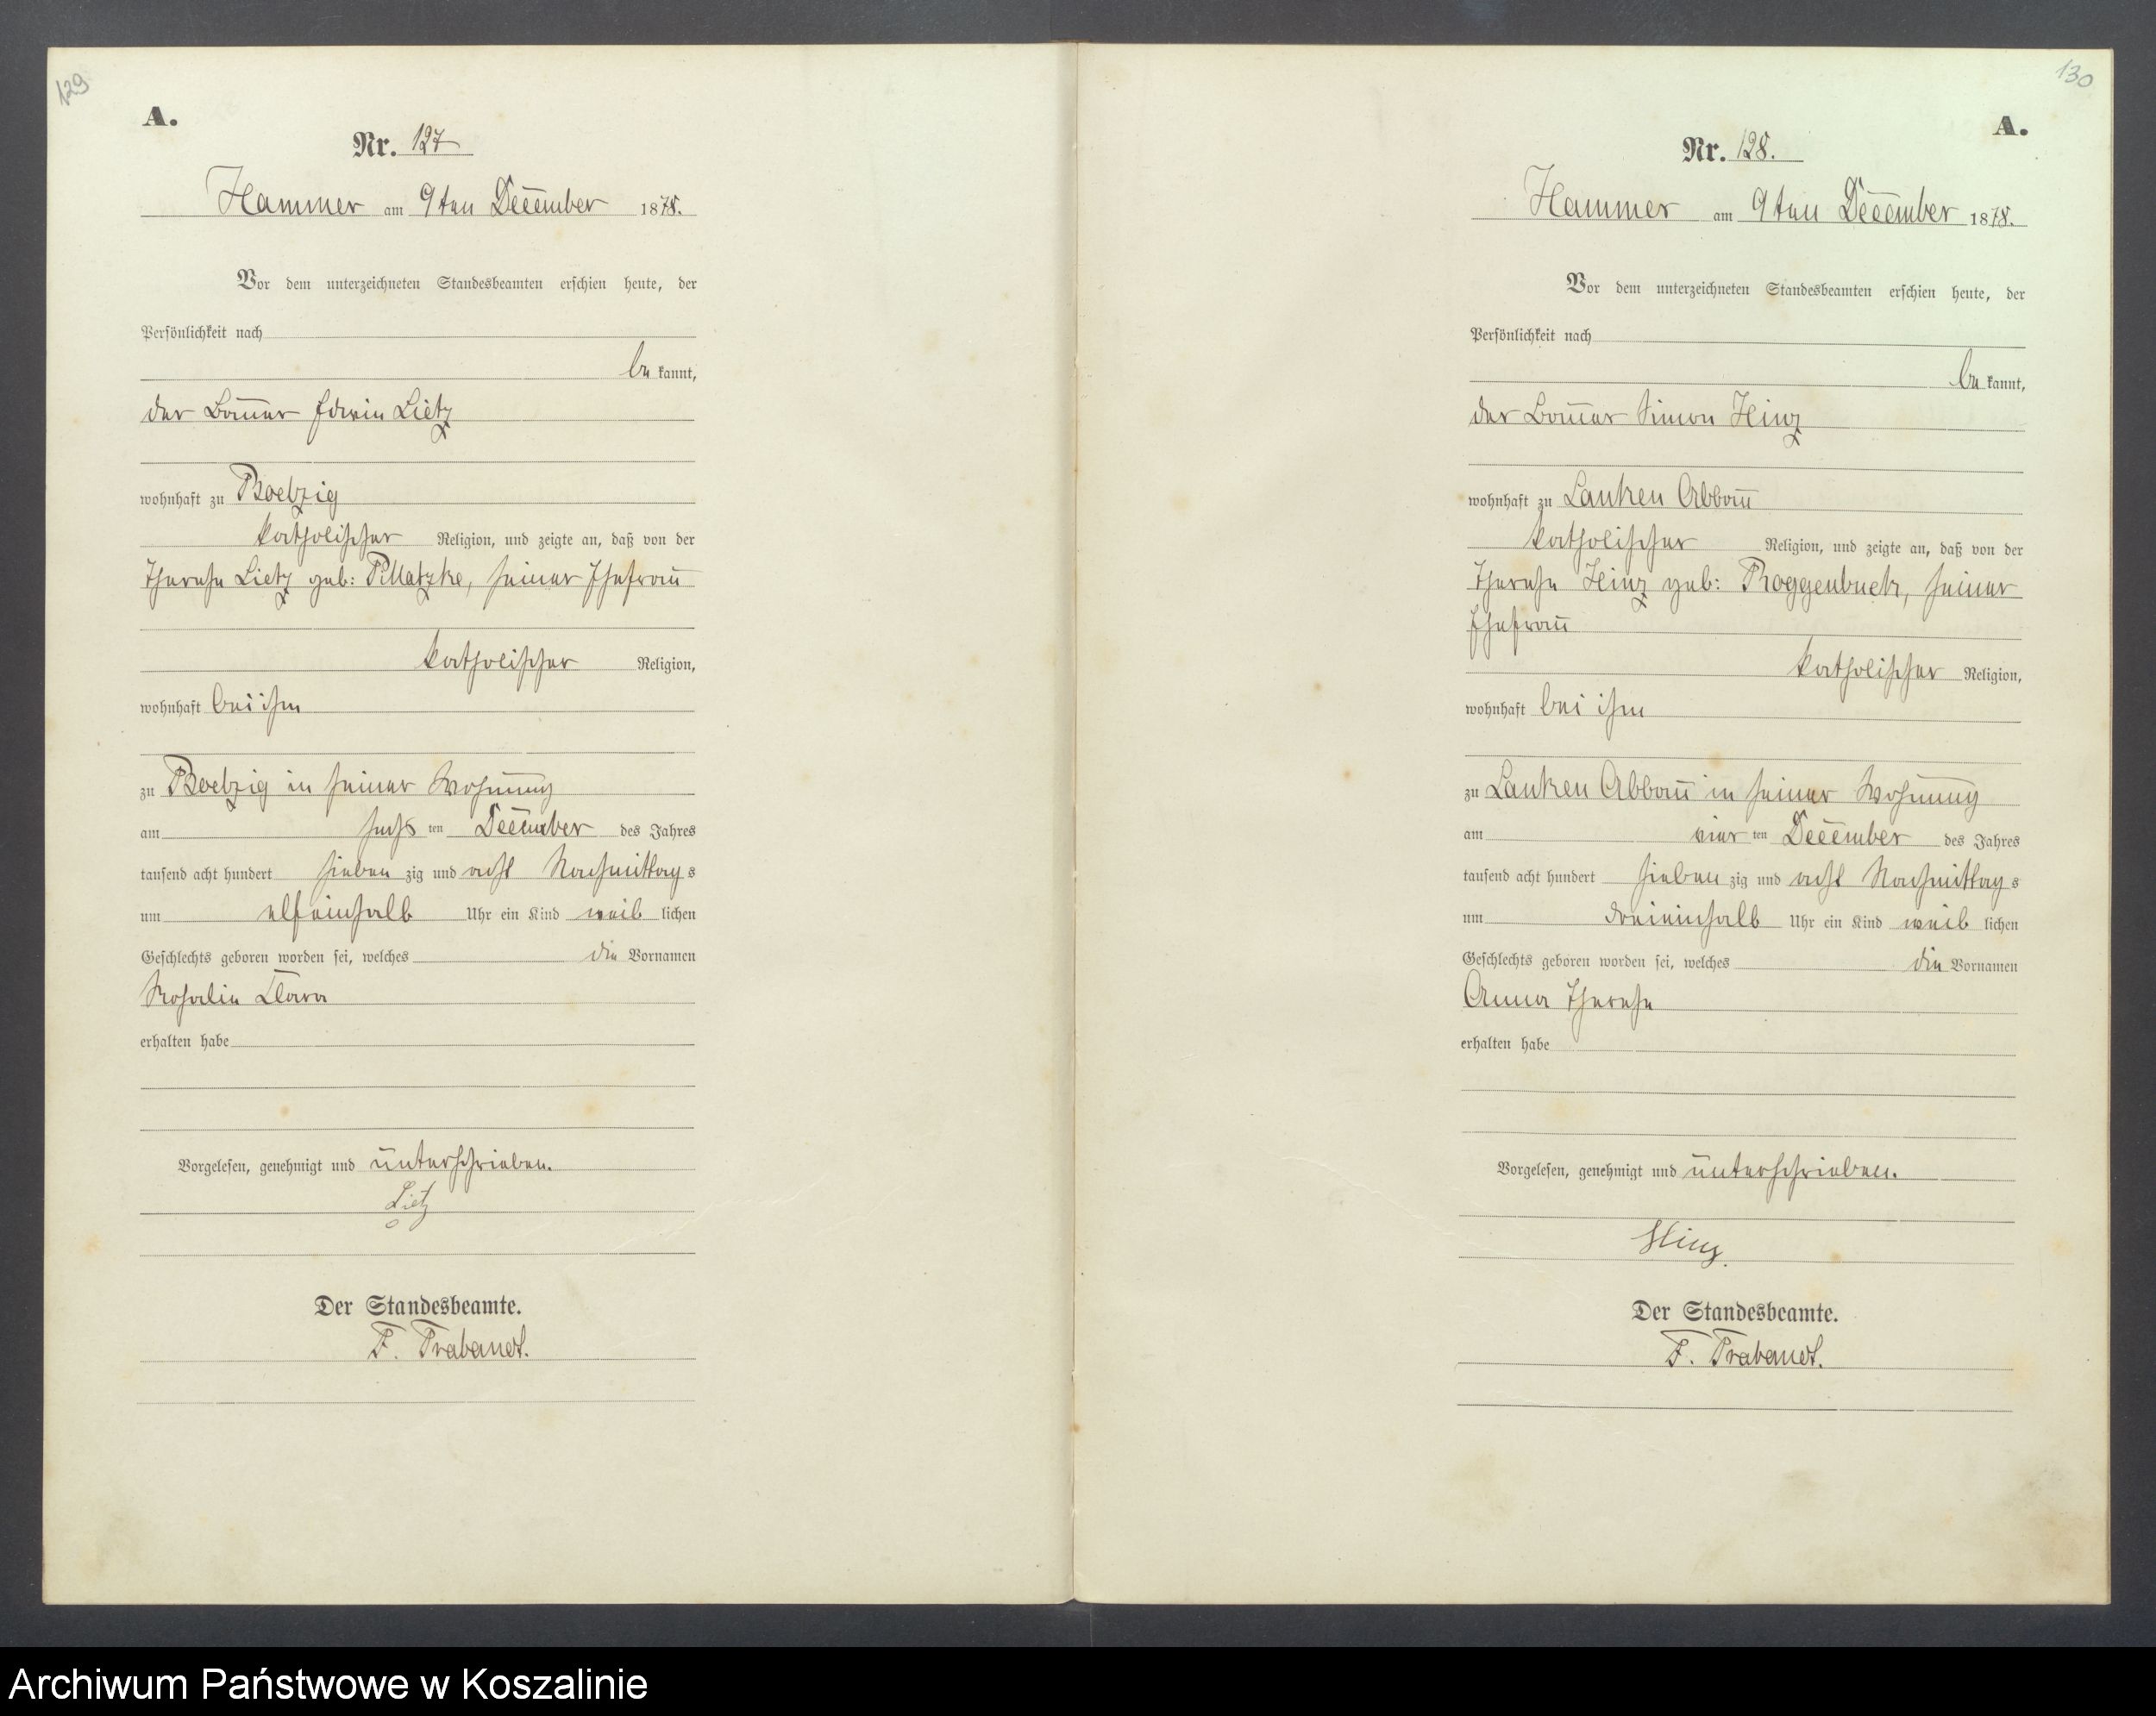 129
A.
Nr. 127
Hammer am 9ten December 1878.
Vor dem unterzeichneten Standesbeamten erschien heute, der
Persönlichkeit nach
be kannt,
der Bauer Edwin Lietz
wohnhaft zu Roetzig
katholischer Religion, und zeigte an, daß von der
Therese Lietz geb: Pillatzke, seiner Ehefrau
katholischer Religion,
wohnhaft bei ihm
zu Roetzig in seiner Wohnung
am sechs ten December des Jahres
tausend acht hundert sieben zig und acht Nachmittag s
um elfeinhalb Uhr ein Kind weib lichen
Geschlechts geboren worden sei, welches die Vornamen
Rosalie Clara
erhalten habe
Vorgelesen, genehmigt und unterschrieben.
Lietz
Der Standesbeamte.
F. Trabandt.
130
A.
Nr. 128.
Hammer am 9ten December 1878.
Vor dem unterzeichneten Standesbeamten erschien heute, der
Persönlichkeit nach
be kannt,
der Bauer Simon Hinz
wohnhaft zu Lanken Abbau
katholischer Religion, und zeigte an, daß von der
Therese Hinz geb: Roggenbuck, seiner
Ehefrau
katholischer Religion,
wohnhaft bei ihm
zu Lanken Abbau in seiner Wohnung
am vier ten December des Jahres
tausend acht hundert sieben zig und acht Nachmittag s
um dreieinhalb Uhr ein Kind weib lichen
Geschlechts geboren worden sei, welches die Vornamen
Anna Therese
erhalten habe
Vorgelesen, genehmigt und unterschrieben.
Hinz.
Der Standesbeamte.
F. Trabandt.
Archiwum Państwowe w Koszalinie